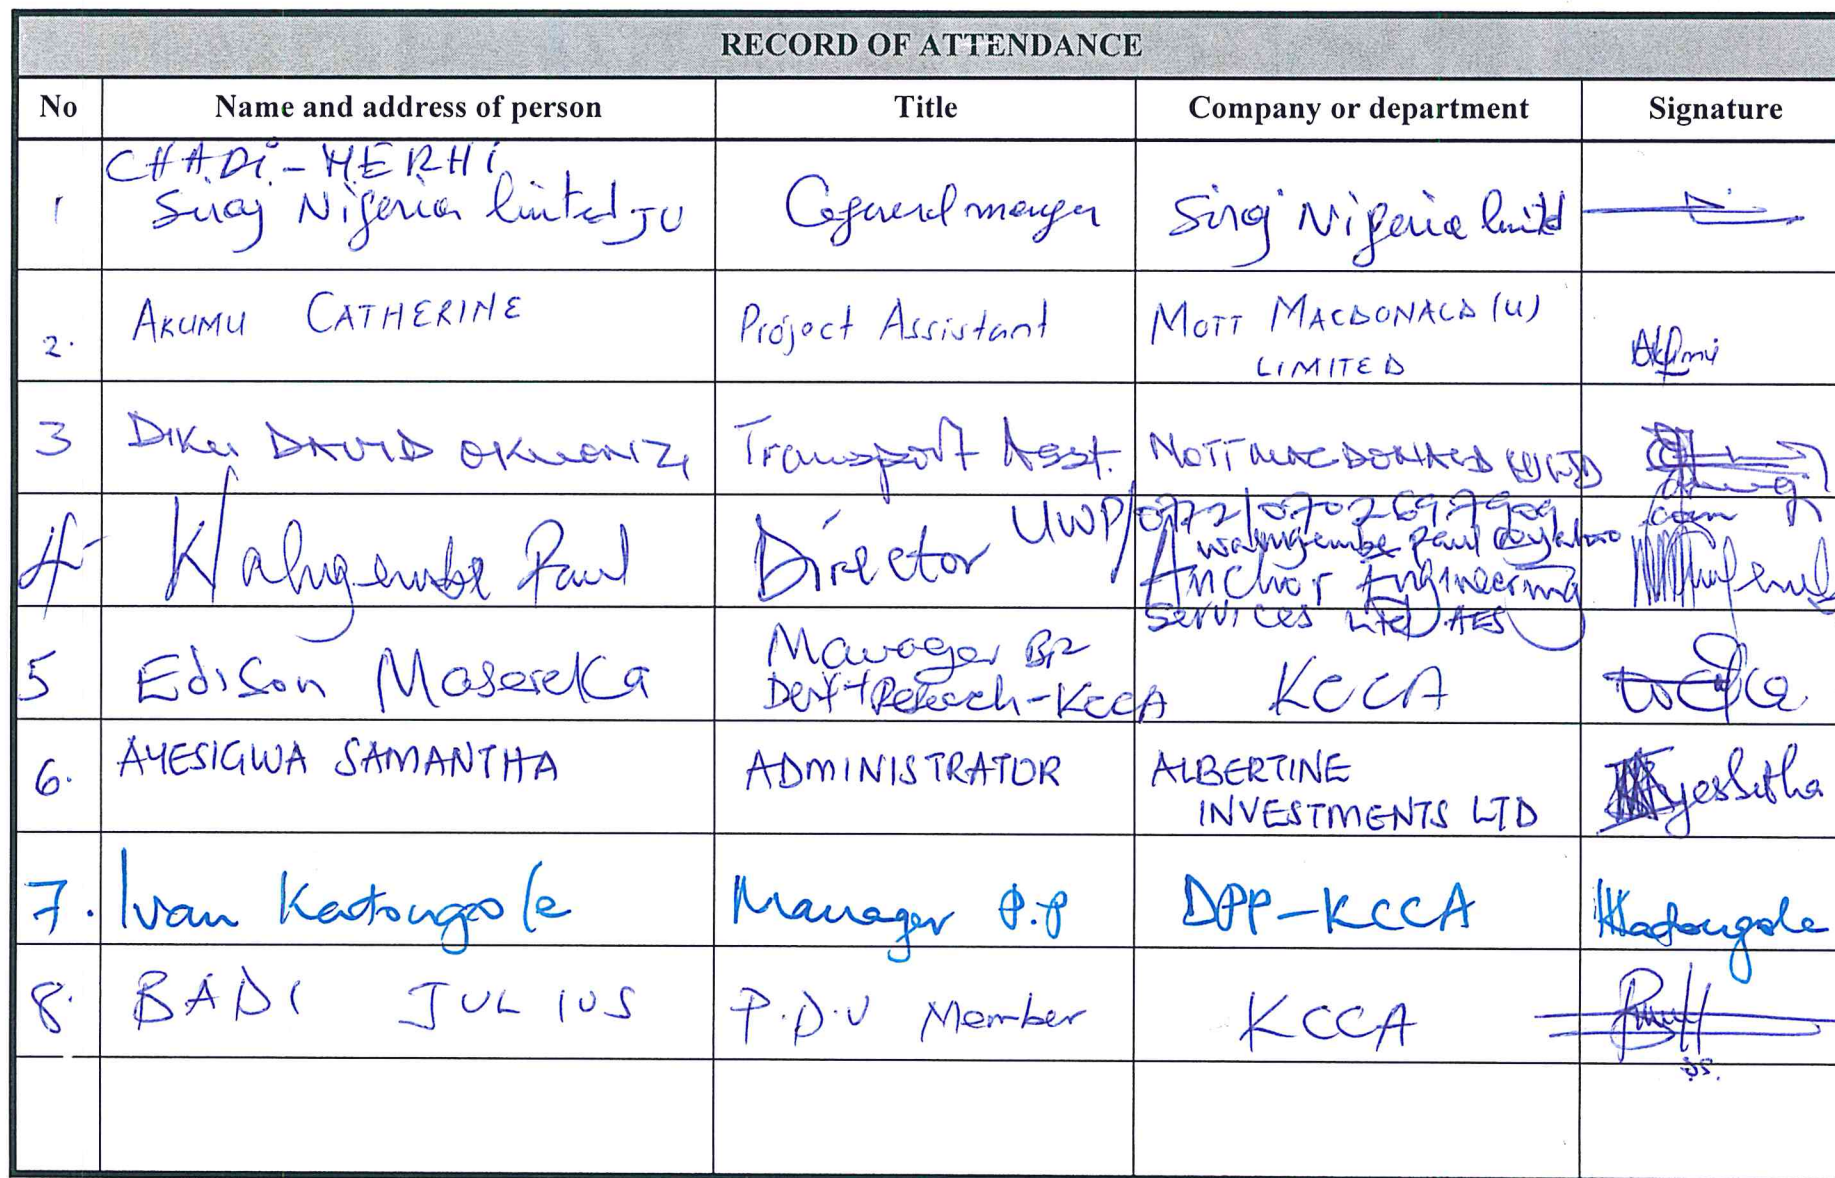 RECORD OF ATTENDANCE
No Name and address of person Title Company or department Signature
1 CHADI-MERHI General manager Siraj Nigeria limited
Siraj Nigeria limited JV
2. AKUMU CATHERINE Project Assistant MOTT MACDONALD (U)
LIMITED
3 DIKU DAVID Transport Asst. MOTT MACDONALD (U) LTD
4 Walugembe Paul Director UWP/0772/0702697909
walugembe paul @yahoo
.com
Anchor Engineering
Services Ltd. AES
5 Edison Masereka Manager BP KCCA
Devt + Research-KCCA
6. AYESIGWA SAMANTHA ADMINISTRATOR ALBERTINE
INVESTMENTS LTD
7. Ivan Katongole Manager P.P DPP-KCCA Katongole
8. BADI JULIUS P.D.U Member KCCA